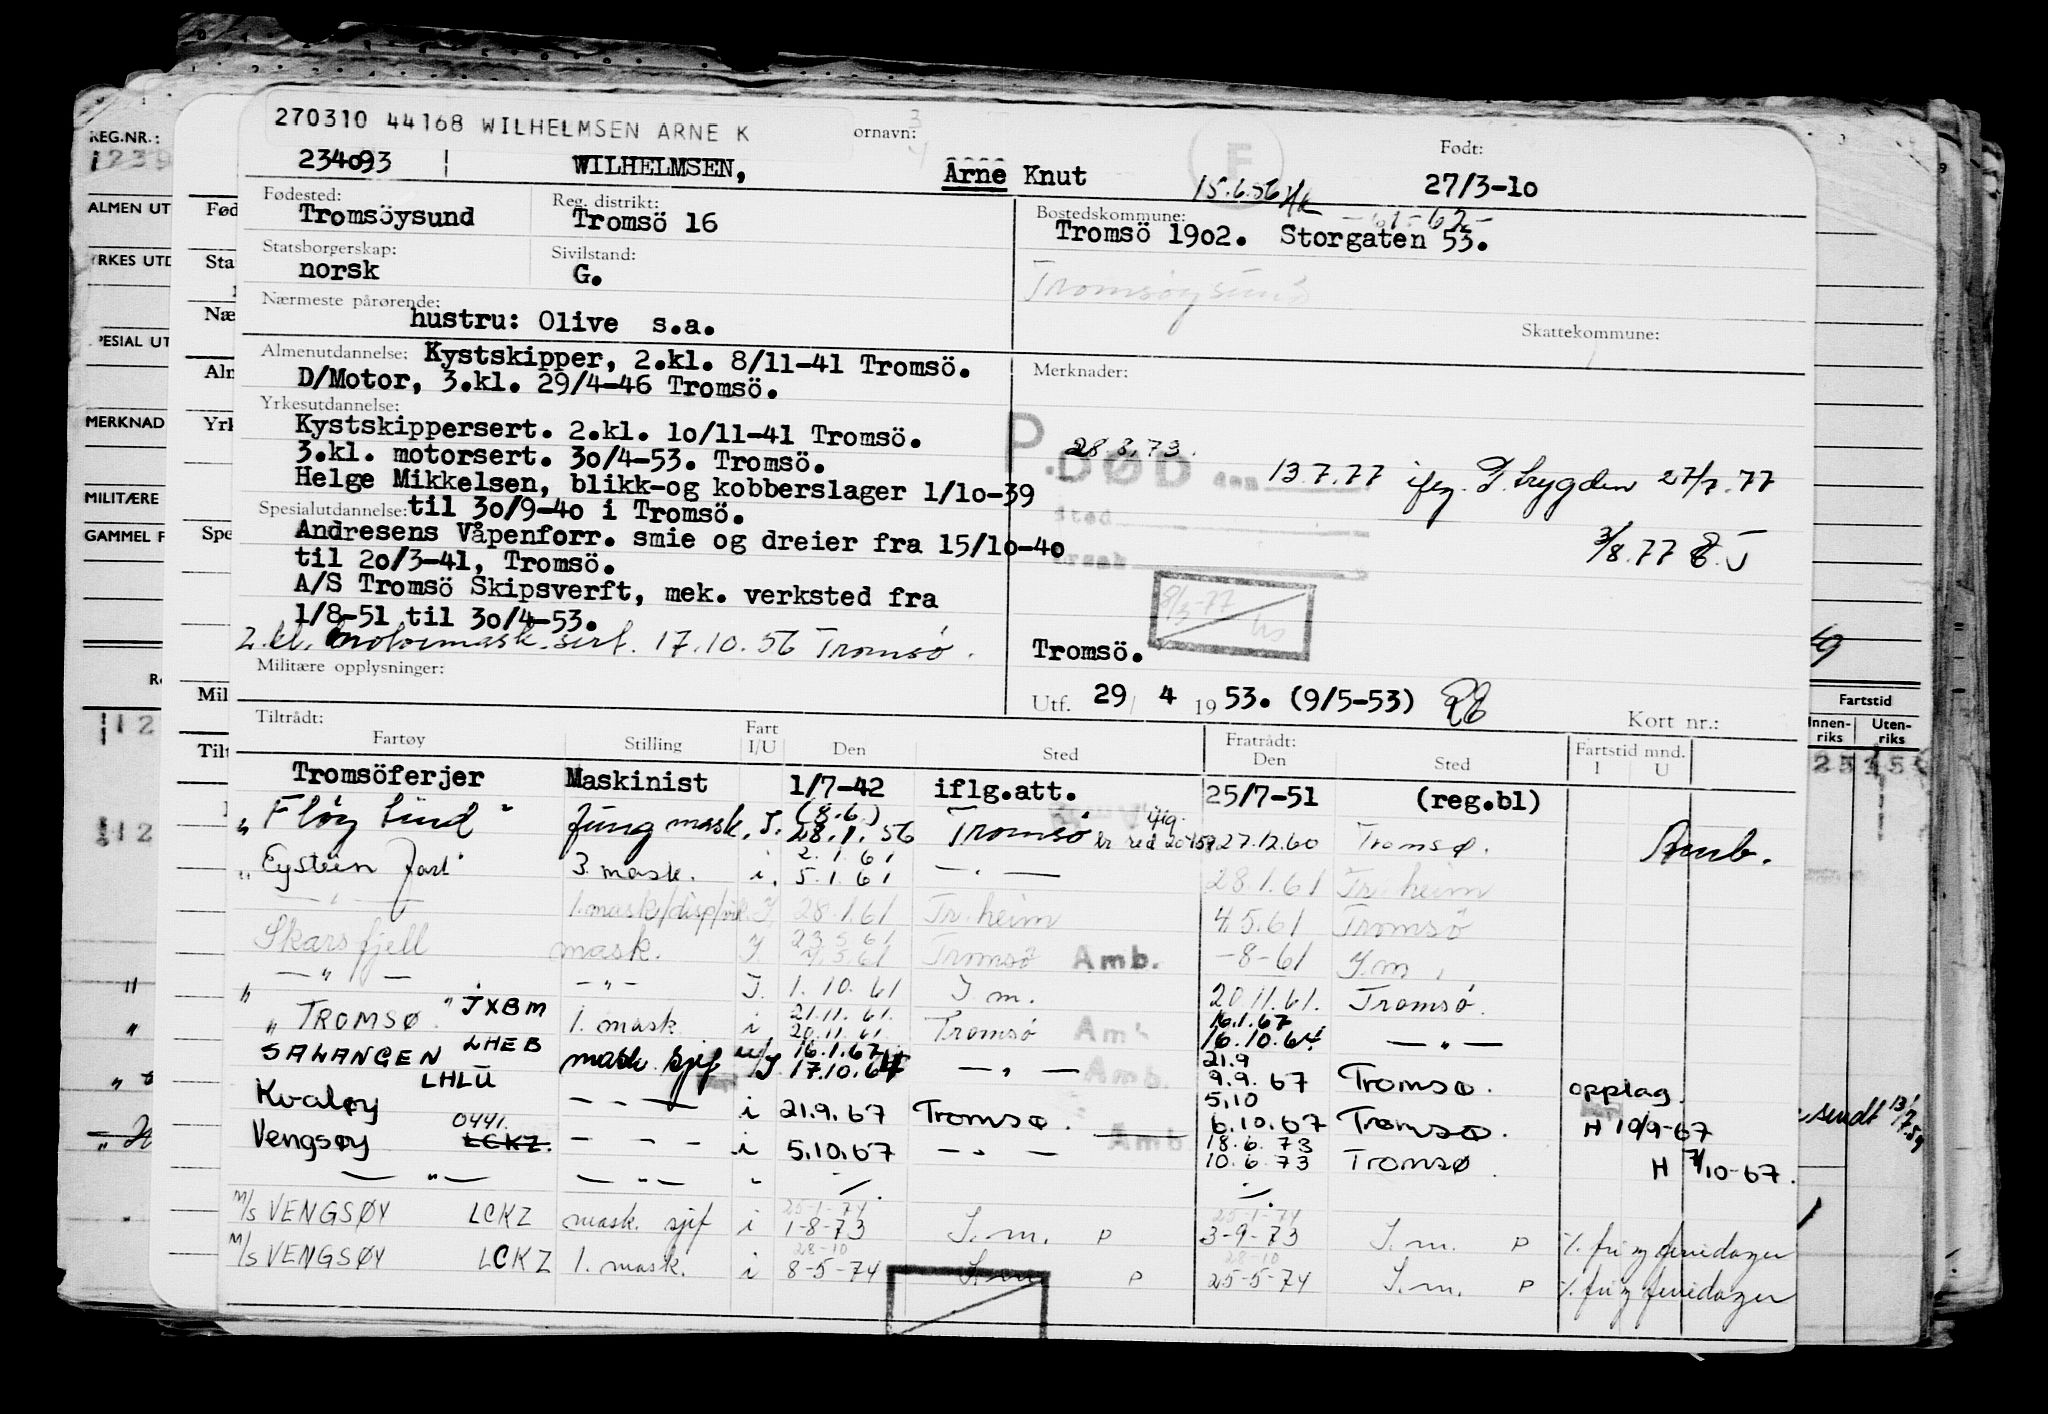 270310 44168 WILHELMSEN ARNE K
ornavn:
Født:
REG.NR.:
234093 WILHELMSEN, Arne Knut 15.6.56 27/3-10
Fødested: Reg. distrikt: Bostedskommune: -61-62-
Tromsöysund Tromsö 16 Tromsö 1902. Storgaten 53.
Statsborgerskap: Sivilstand:
norsk G. Tromsøysund
Nærmeste pårørende:
hustru: Olive s.a.
Skattekommune:
Almenutdannelse: Kystskipper, 2.kl. 8/11-41 Tromsö.
D/Motor, 3.kl. 29/4-46 Tromsö.
Merknader:
Yrkesutdannelse:
Kystskippersert. 2.kl. 10/11-41 Tromsö.
3.kl. motorsert. 30/4-53. Tromsö.
Helge Mikkelsen, blikk-og kobberslager 1/10-39
Spesialutdannelse: til 30/9-40 i Tromsö.
Andresens Våpenforr. smie og dreier fra 15/10-40
til 20/3-41, Tromsö.
A/S Tromsö Skipsverft, mek. verksted fra
1/8-51 til 30/4-53.
2. kl. motormask.sert. 17.10.56 Tromsö.
P. 28.8.73.
DØD den 13.7.77 iflg. T.trygden 27/7.77
sted
årsak
3/8.77
8/3-77
Militære opplysninger:
Tromsö.
Utf. 29/ 4 19 53. (9/5-53)
Kort nr.:
Tiltrådt: Fratrådt:
Fartøy Stilling Fart I/U Den Sted Den Sted Fartstid mnd. I U
Tromsöferjer Maskinist 1/7-42 iflg.att. 25/7-51 (reg.bl)
"Fløy sund" Jung mask. I. (8.6.) 28.1.56 Tromsø 27.12.60 Tromsø. Amb.
"Eystein Jarl" 3. mask. i. 2.1.61 5.1.61 — . — 28.1.61 Tr.heim
— " — 1. mask/disp/vik. I 28.1.61 Tr.heim 4.5.61 Tromsø
Skarsfjell mask. I. 23.5.61 Tromsø Amb. -8-61 I.m.
— " — - " - I. 1.10.61 I m. 20.11.61. Tromsø.
"TROMSØ" JXBM 1. mask i 21.11.61. 20.11.61. Tromsø Amb 16.1.67 16.10.64 — " —
SALANGEN LHEB mask. sjef I 16.1.67 17.10.64 — . — Amb. 21.9 9.9.67 Tromsø. opplag.
Kvaløy LHLU — - — i 21.9.67 Tromsø. 5.10 6.10.67 Tromsø. H 10/9-67
Vengsøy 0441. LCKZ. — - - — i 5.10.67 — . — Amb 18.6.73 10.6.73 Tromsø. H 7/10-67.
— " — — " — " -/.
M/S VENGSØY LCKZ mask. sjef i 25-1-74 1-8-73 I.m. P 25-1-74 3-9-73 I.m. P ٪. fri og feriedager
M/S VENGSØY LCKZ 1. mask. i 28-10 8-5-74 I.m. P 28-10 25-5-74 I.m. P ٪. fri og feriedager
ALMEN UT
YRKES UTD
MERKNAD
MILITÆRE
GAMMEL F
Fød
Sta
Næ
Alm
Yrk
Spe
Mil
Tilt
Fartstid
Innen-riks Uten-riks